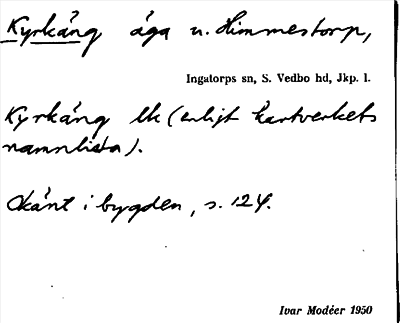 Kyrkäng äga u. Himmestorp,
Ingatorps sn, S. Vedbo hd, Jkp. l.
Kyrkäng lk (enligt kartverkets
namnlista).
Okänt i bygden, s. 124.
Ivar Modéer 1950